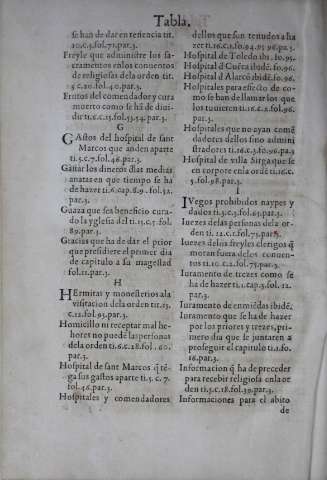 Tabla.
se han de dar en tenencia tit.
10.c.3.fol.71.par.3.
Freyle que administre los sa-
cramentos en los conuentos
de religiosas dela orden tit.
5.c.20.fol.40.par.3.
Frutos del comendador y cura
muerto como se ha de diui-
dir ti.c.15.fol.53.54.par.3.
G
GAstos del hospital de sant
Marcos que anden aparte
ti.5.c.7.fol.48.par.3.
Gastar los dineros dlas medias
anatas en que tiempo se ha
de hazer ti.6.cap.8.9.fol.52.
par.3.
Guaza que sea beneficio cura-
do la yglesia del ti.15.c.5.fol.
89.par.3.
Gracias que ha de dar el prior
que presidiere el primer dia
de capitulo a su magestad
fol.12.par.3.
H
HErmitas y monesterios ala
visitacion dela orden tit.13.
c.12.fol.93.par.3.
Homicillo ni receptar mal he-
hores no puede las personas
dela orden ti.6.c.28.fol.60.
par.3.
Hospital de sant Marcos q̃ tē-
ga sus gastos aparte ti.5.c.7.
fol.48.par.3.
Hospitales y comendadores
dellos que son tenudos a ha
zer ti.16.c.1.fo.94.95.96.pa.3.
Hospital de Toledo ibi. fo.96.
Hospital d Cuēca ibidē.fo.96.
Hospital d Alarcō ibidē fo.96.
Hospitales para efecto de co-
mo se han de llamar los que
los tuuieren ti.16.c.2.fol.96.
par.3.
Hospitales que no ayan comē
dadores dellos sino admini
stradores ti.16.c.3.fo.96.pa.3
Hospital de villa Sirga que se
en corpore en la ordē ti.16.c.
5.fol.98.par.3.
I
IVegos prohibidos naypes y
dados ti.3.c.3.fol.63.par.3.
Iuezes de las personas de la or
den ti. 12.c.1.fol.75.par.3.
Iuezes delos freyles clerigos q̃
moran fuera delos conuen-
tos ti.10.c.2.fol.75.par.3.
Iuramento de trezes como se
ha de hazer ti.1.cap.3.fol.12.
par.3.
Iuramento de enmiēdas ibidē.
Iuramento que se ha de hazer
por los priores y trezes, pri-
mero dia que se juntaren a
proseguir el capitulo ti.1.fo.
16.par.3.
Informacion q̃ ha de preceder
para recebir religiosa en la or
den ti.5.c.18.fol.39.par.3.
Informaciones para el abito
de